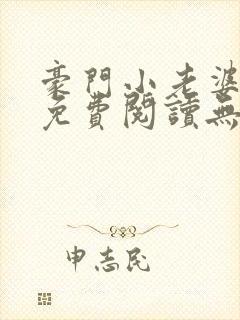 豪門小老婆
免費閱讀無
申志民